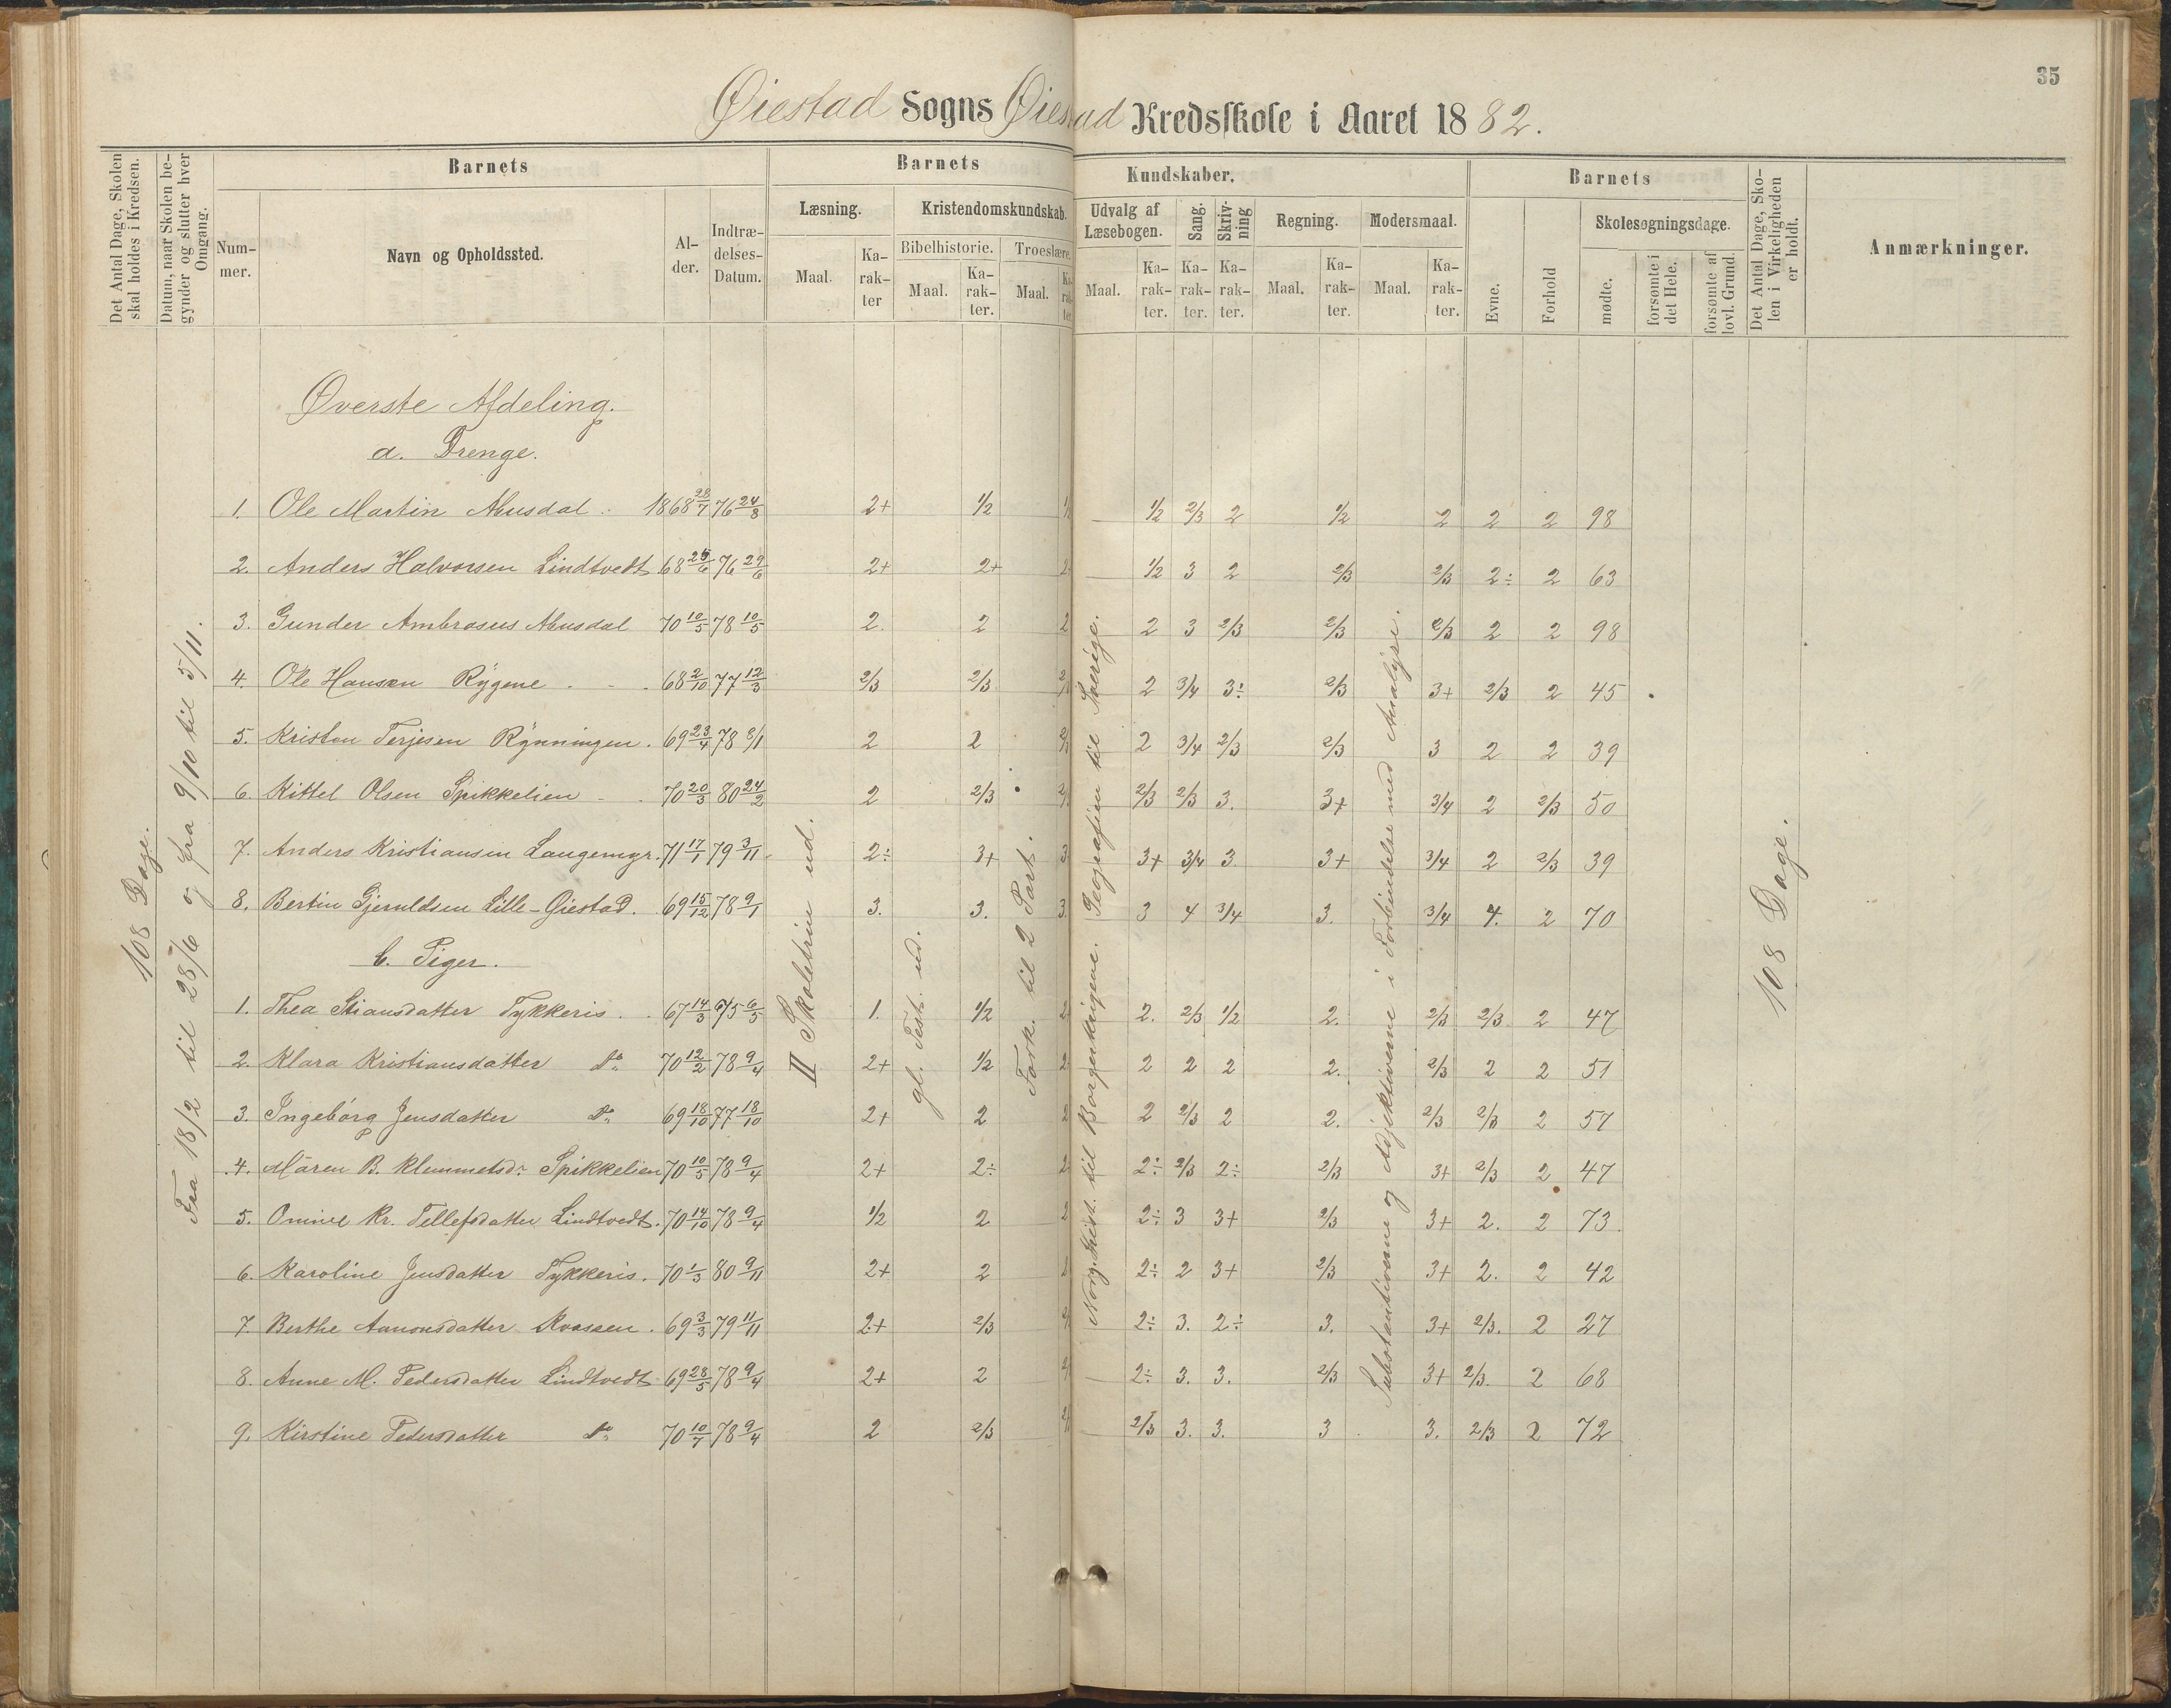 35
Øiestad Sogns Øiestad Kredsskole i Aaret 1882.
Det Antal Dage, Skolen skal holdes i Kredsen.
Datum, naar Skolen begynder og slutter hver Omgang.
Barnets
Nummer.
Navn og Opholdssted.
Alder.
Indtrædelses-Datum.
Barnets Kundskaber.
Læsning.
Maal.
Karakter
Kristendomskundskab.
Bibelhistorie.
Maal.
Karakter.
Troeslære.
Maal.
Karakter.
Udvalg af Læsebogen.
Maal.
Karakter.
Sang.
Karakter.
Skrivning
Karakter.
Regning.
Maal.
Karakter.
Modersmaal.
Maal.
Karakter.
Barnets
Evne.
Forhold
Skolesøgningsdage.
mødte.
forsømte i det Hele.
forsømte af lovl. Grund.
Det Antal Dage, Skolen i Virkeligheden er holdt.
Anmærkninger.
108 Dage.
Fra 18/2 til 28/6 og fra 9/10 til 5/11.
II Skoletrin ud.
gl. Test. ud.
Fork. til 2 Part.
Norg. Hist. til Borgerkrigene. Geografien til Sverige.
Substantiverne og Adjektiverne i Forbindelse med Analyse.
108 Dage.
Øverste Afdeling.
a. Drenge.
1. Ole Martin 1868 28/7 76 24/8 2+ 1/2 1/2 2/3 2 1/2 2 2 2 98
2. Anders Halvorsen Lindtvedt 68 25/6 76 29/6 2+ 2+ 1/2 3 2 2/3 2/3 2÷ 2 63
3. Gunder Ambrosius 70 10/5 78 10/5 2 2 2 2 3 2/3 2/3 2/3 2 2 98
4. Ole Hansen Rygene 68 2/10 77 12/3 2/3 2/3 2 3/4 3÷ 2/3 3+ 2/3 2 45
5. Kristen Terjesen Rønningen. 69 23/4 78 8/1 2 2 2 3/4 2/3 2/3 3 2 2 39
6. Kittel Olsen Spikkelien 70 20/3 80 24/2 2 2/3 2/3 2/3 3. 3+ 3/4 2 2/3 50
7. Anders Kristiansen Langemyr. 71 17/1 79 3/11 2÷ 3+ 3 3+ 3/4 3 3+ 3/4 2 2/3 39
8. Bertin Gjeruldsen Lille-Øiestad. 69 15/12 78 9/1 3. 3. 3. 3 4 3/4 3. 3/4 4. 2 70
b. Piger.
1. Thea Stiansdatter Tykkeris. 67 14/3 75 6/5 1. 1/2 2. 2/3 1/2 2. 2/3 2/3 2 47
2. Klara Kristiansdatter do 70 12/2 78 9/4 2+ 1/2 2 2 2 2. 2/3 2 2 51
3. Ingeborg Jensdatter do 69 18/10 77 18/10 2+ 2 2 2/3 2 2. 2/3 2/3 2 57
4. Maren B. Klemmetsdr. Spikkelien 70 10/5 78 9/4 2+ 2÷ 2÷ 2/3 2÷ 2/3 3+ 2/3 2 47
5. Kr. Tellefsdatter Lindtvedt. 70 14/10 78 9/4 1/2 2 2÷ 3 3+ 2/3 3+ 2. 2 73
6. Karoline Jensdatter Tykkeris. 70 1/3 80 9/11 2+ 2 2÷ 2 3+ 2/3 3+ 2. 2 42
7. Berthe Aanonsdatter 69 3/3 79 11/11 2+ 2/3 2÷ 3. 2÷ 3. 3+ 2/3. 2 27
8. Anne M. Pedersdatter Lindtvedt 69 28/5 78 9/4 2+ 2 2÷ 3. 3. 2/3 3+ 2/3. 2 68
9. Kirstine Pedersdatter do 70 10/7 78 9/4 2 2/3 2/3 3. 3. 3 3. 2/3 2 72